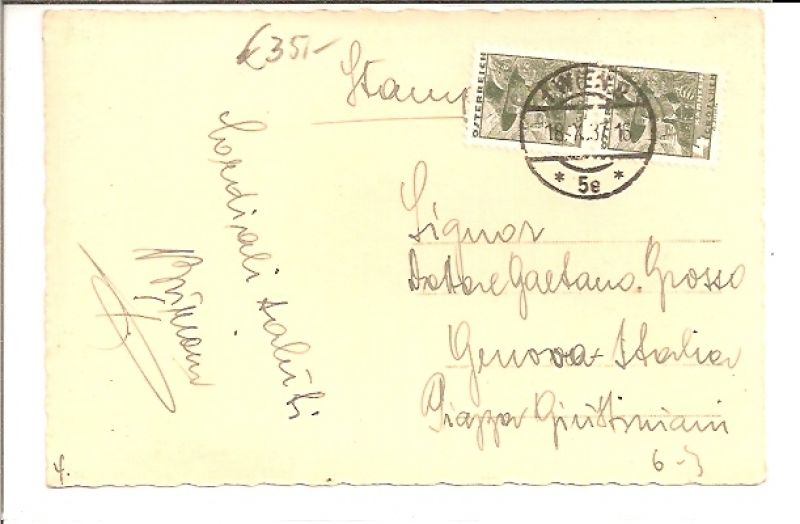 £ 351-
Stamp
ÖSTERREICH
1 WIEN 1
18.X.37.16
* 5e *
Cordiali saluti
Signor
Dottore Gaetano Grosso
Genova Italia
Piazza Giustiniani
6-3
4.